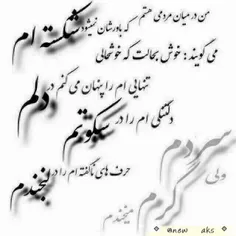 من در میان مردمی هستم
که باورشان نمیشود
شکسته ام
می گویند : خوش بحالت که خوشحالی
تنهایی ام را پنهان می کنم در
دلم
دلتنگی ام را در
سکوتم
حرف های ناگفته ام را در
لبخندم
سردم
ولی
گرم
میخندم
@new aks